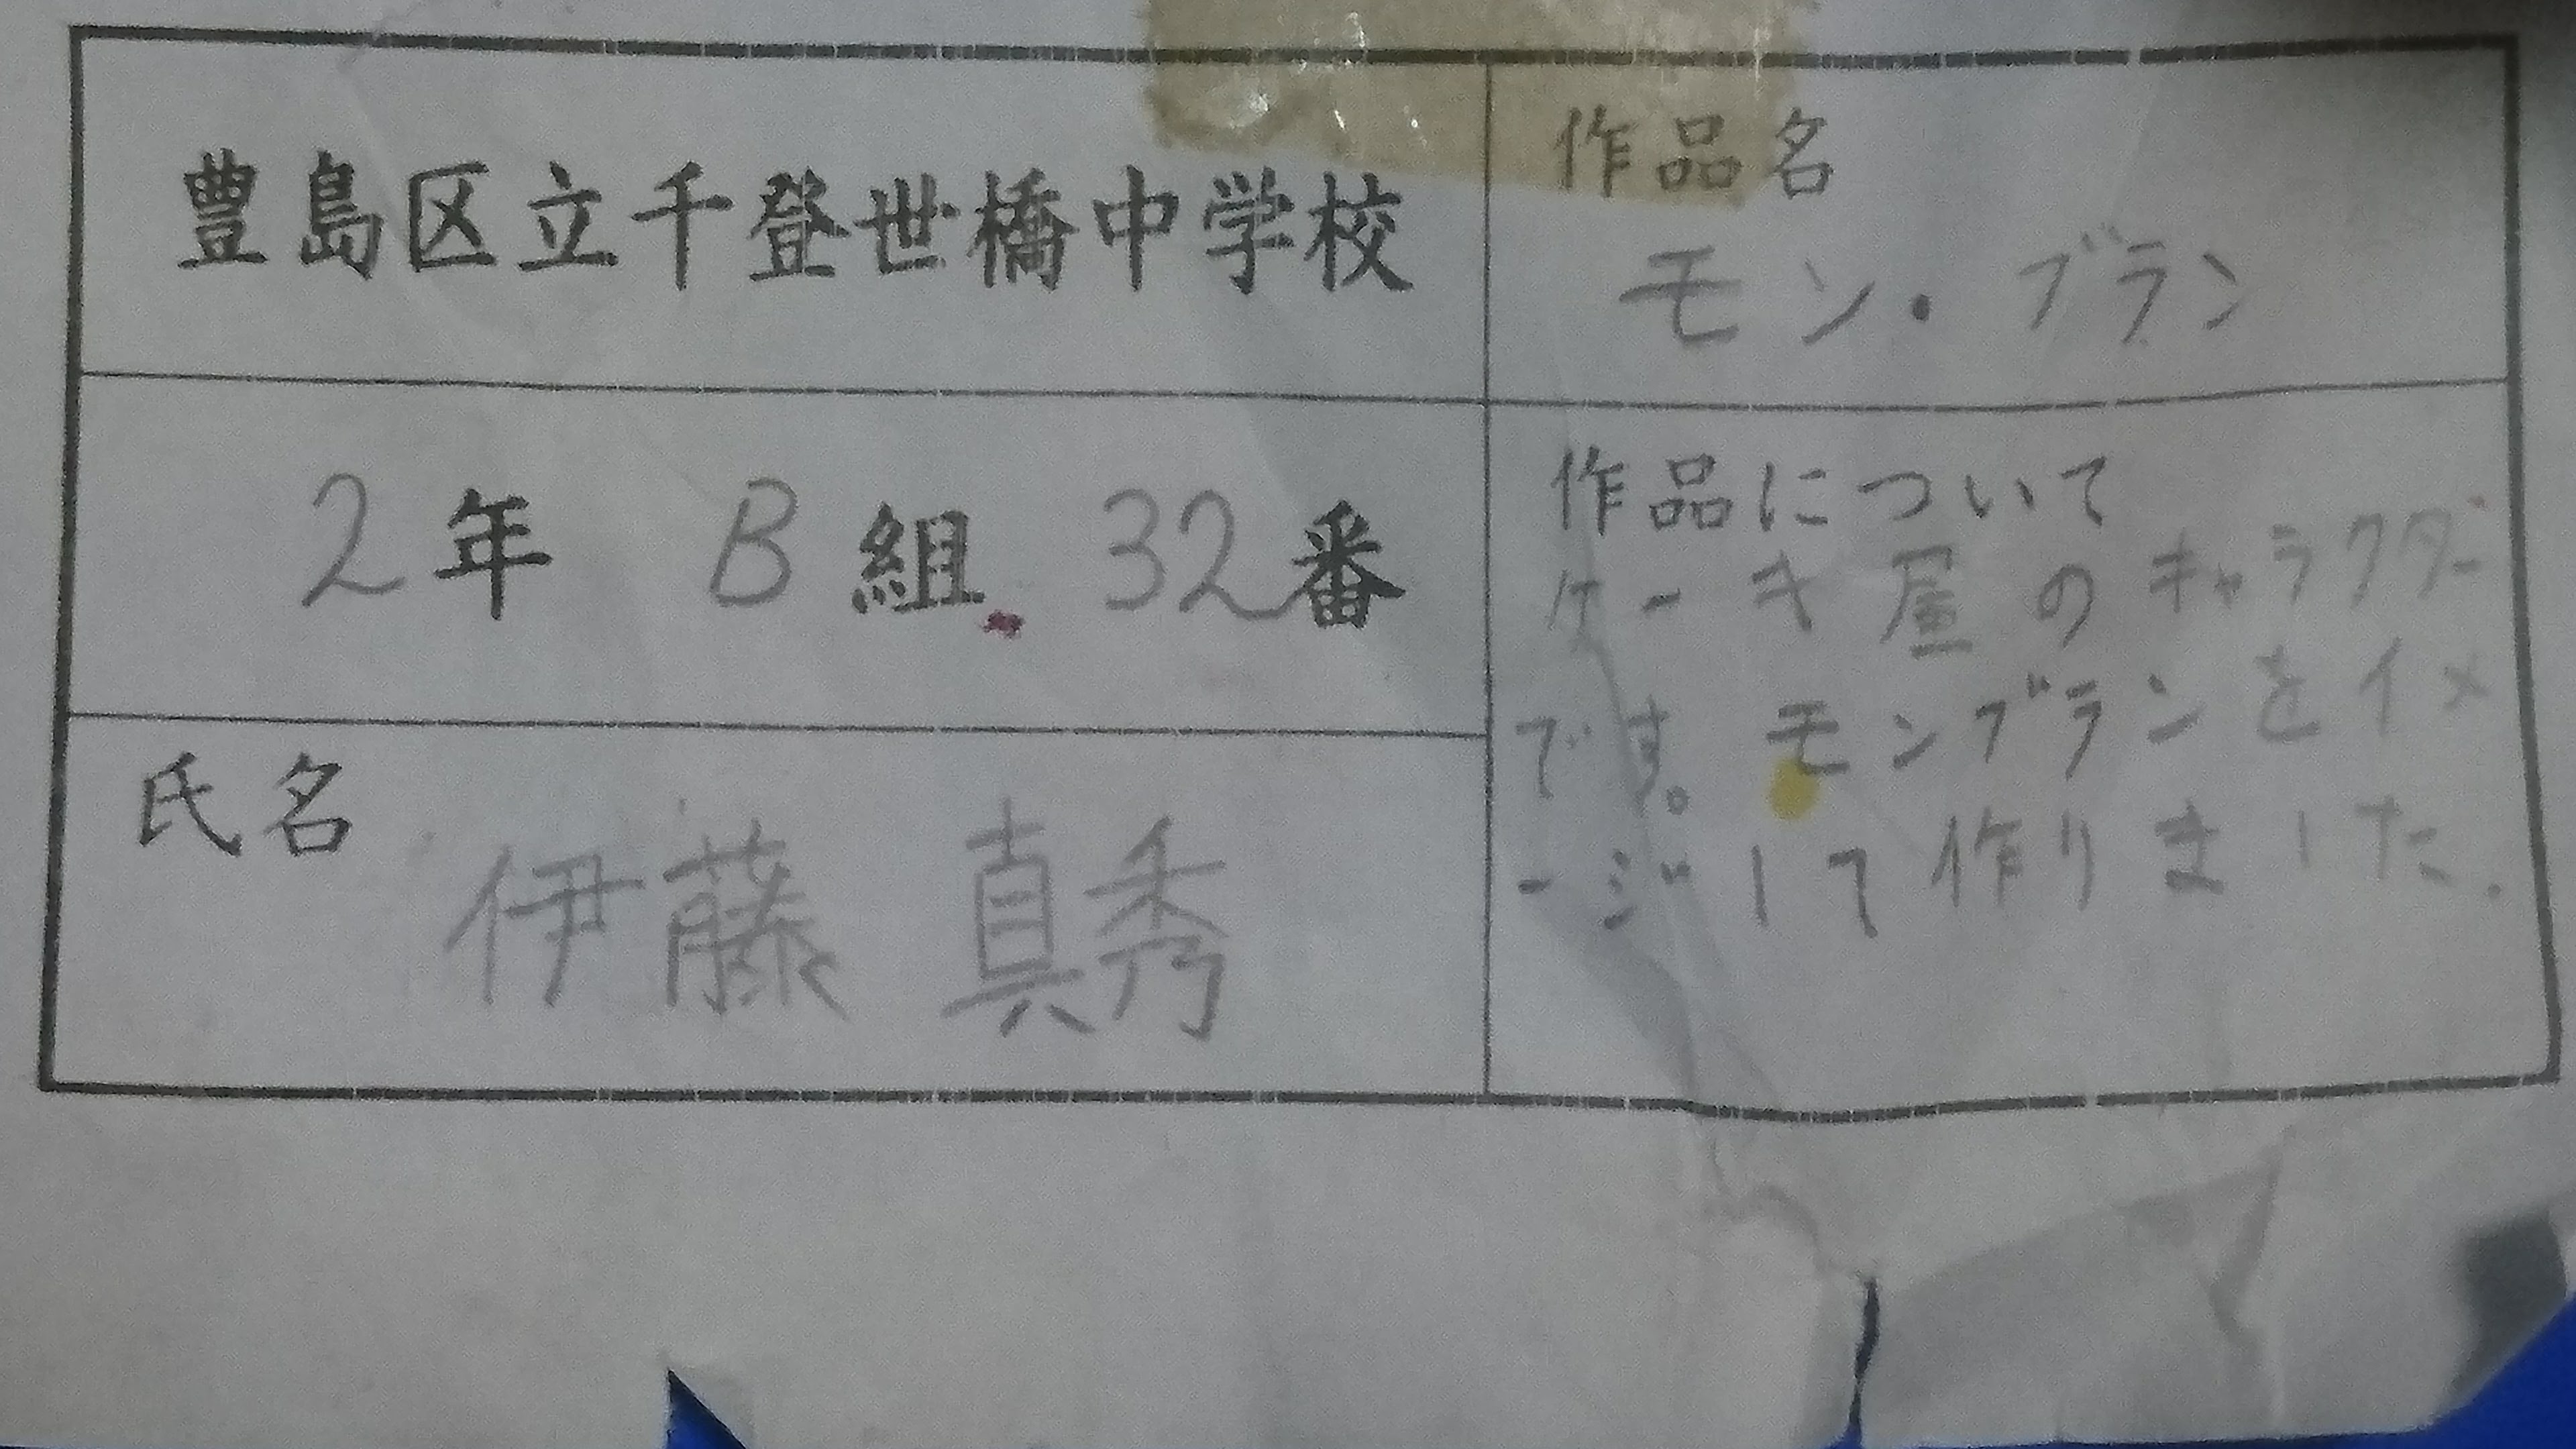 豊島区立千登世橋中学校
2年 B組 32番
氏名
伊藤 真秀
作品名
モン・ブラン
作品について
ケーキ屋のキャラクター
です。モンブランをイメ
ージして作りました。